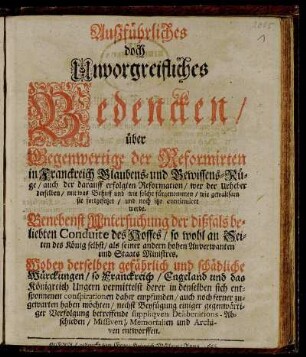 Außführliches
doch
Unvorgreifliches
Bedencken/
über
Gegenwertige der Reformirten
in Franckreich Glaubens- und Gewissens-Rü-
ge/ auch der darauff erfolgten Reformation/ wer der Urheber
derselben/ mit was Behuff und
sie fortgesetzet/ und noch continuirt
werde.
Benebenst Untersuchung der dißfals be-
liebten Conduite des Hoffes/ so wohl an Sei-
ten des König selbst/ als seiner andern hohen Anverwandten
und Staats Ministres.
Wobey derselben gefährlich und schädliche
Würckungen/ so Franckreich/ Engeland und das
Königreich Ungern vermittelst derer in denselben sich ent-
sponnenen conspirationen daher empfunden/ auch noch ferner zu-
gewarten haben möchten/ nechst Beyfügung einiger gegenwärti-
ger Verfolgung betreffende Deliberations-
Abschieden/ Missiven/ Memorialien und Archi-
ven entworffen.